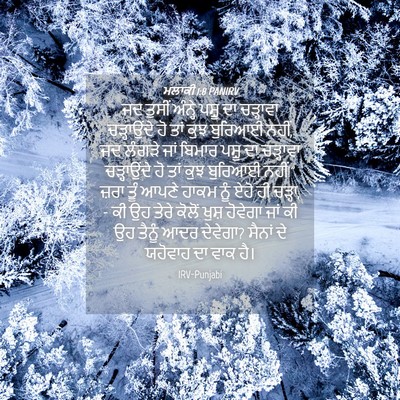 ਮਲਾਕੀ 1:8 PANIRV
ਜਦ ਤੁਸੀਂ ਅੰਨ੍ਹੇ ਪਸ਼ੂ ਦਾ ਚੜ੍ਹਾਵਾ
ਚੜ੍ਹਾਉਂਦੇ ਹੋ ਤਾਂ ਕੁਝ ਬੁਰਿਆਈ ਨਹੀਂ
ਜਦ ਲੰਗੜੇ ਜਾਂ ਬਿਮਾਰ ਪਸ਼ੂ ਦਾ ਚੜ੍ਹਾਵਾ
ਚੜ੍ਹਾਉਂਦੇ ਹੋ ਤਾਂ ਕੁਝ ਬੁਰਿਆਈ ਨਹੀਂ
ਜ਼ਰਾ ਤੂੰ ਆਪਣੇ ਹਾਕਮ ਨੂੰ ਏਹੋ ਹੀ ਚੜ੍ਹਾ
- ਕੀ ਉਹ ਤੇਰੇ ਕੋਲੋਂ ਖੁਸ਼ ਹੋਵੇਗਾ ਜਾਂ ਕੀ
ਉਹ ਤੈਨੂੰ ਆਦਰ ਦੇਵੇਗਾ? ਸੈਨਾਂ ਦੇ
ਯਹੋਵਾਹ ਦਾ ਵਾਕ ਹੈ।
IRV-Punjabi